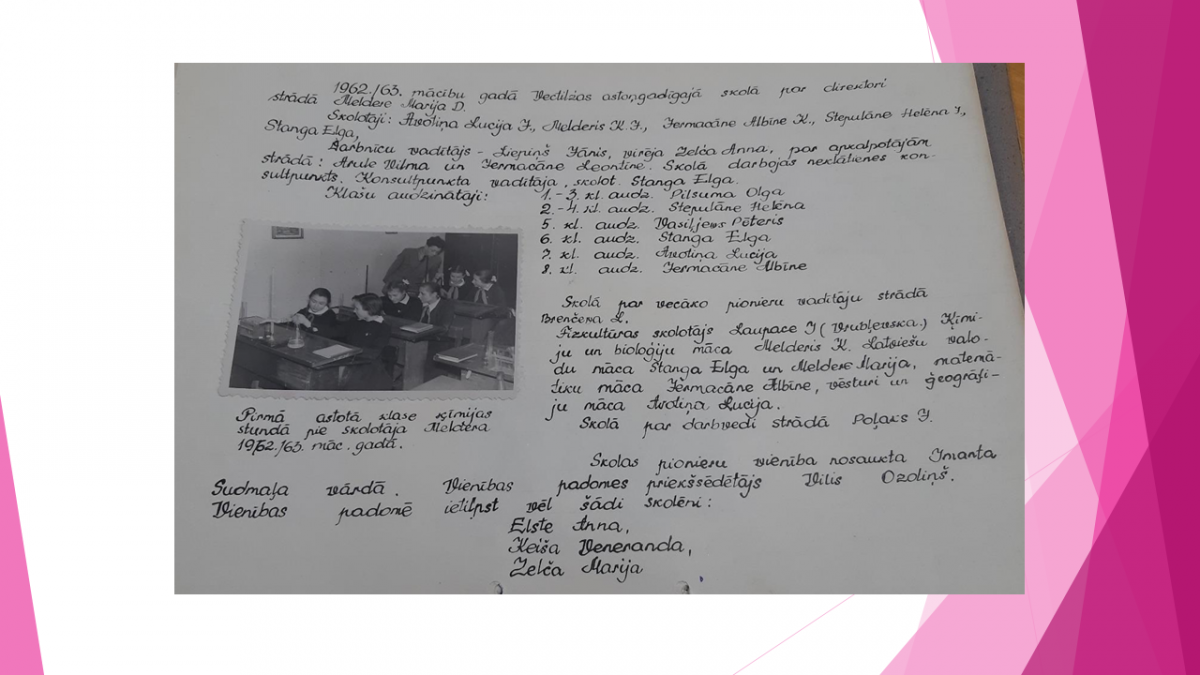 1962./63. mācību gadā Vectilžas astoņgadīgajā skolā par direktori
strādā Meldere Marija D.
Skolotāji: Avoliņa Lucija J., Melderis K. J., Jermacāne Albīne K., Stepulāne Helēna J.,
Stanga Elga,
Darbnīcu vadītājs - Liepiņš Jānis, virēja Zelča Anna, par apkalpotājām
strādā: Arule Vilma un Jermacāne Leontīne. Skolā darbojas neklātienes kon-
sultpunkts. Konsultpunkta vadītāja, skolot. Stanga Elga.
Klašu audzinātāji:
1.-3. kl. audz. Pilsuma Olga
2.-4. kl. audz. Stepulāne Helēna
5. kl. audz. Vasiļjevs Pēteris
6. kl. audz. Stanga Elga
7. kl. audz. Avoliņa Lucija
8. kl. audz. Jermacāne Albīne
Skolā par vecāko pionieru vadītāju strādā
Brenčena L.
Fizkultūras skolotājs Laupace J (Vrubļevska.) Ķīmi-
ju un bioloģiju māca Melderis K. Latviešu valo-
du māca Stanga Elga un Meldere Marija, matemā-
tiku māca Jermacāne Albīne, vēsturi un ģeogrāfi-
ju māca Avoliņa Lucija.
Skolā par darbvedi strādā Poļaks J.
Pirmā astotā klase ķīmijas
stundā pie skolotāja Meldera
1962./63. māc. gadā.
Skolas pionieru vienība nosaukta Imanta
Sudmaļa vārdā. Vienības padomes priekšsēdētājs Vilis Ozoliņš.
Vienības padomē ietilpst vēl šādi skolēni:
Elste Anna,
Keiša Veneranda,
Zelča Marija